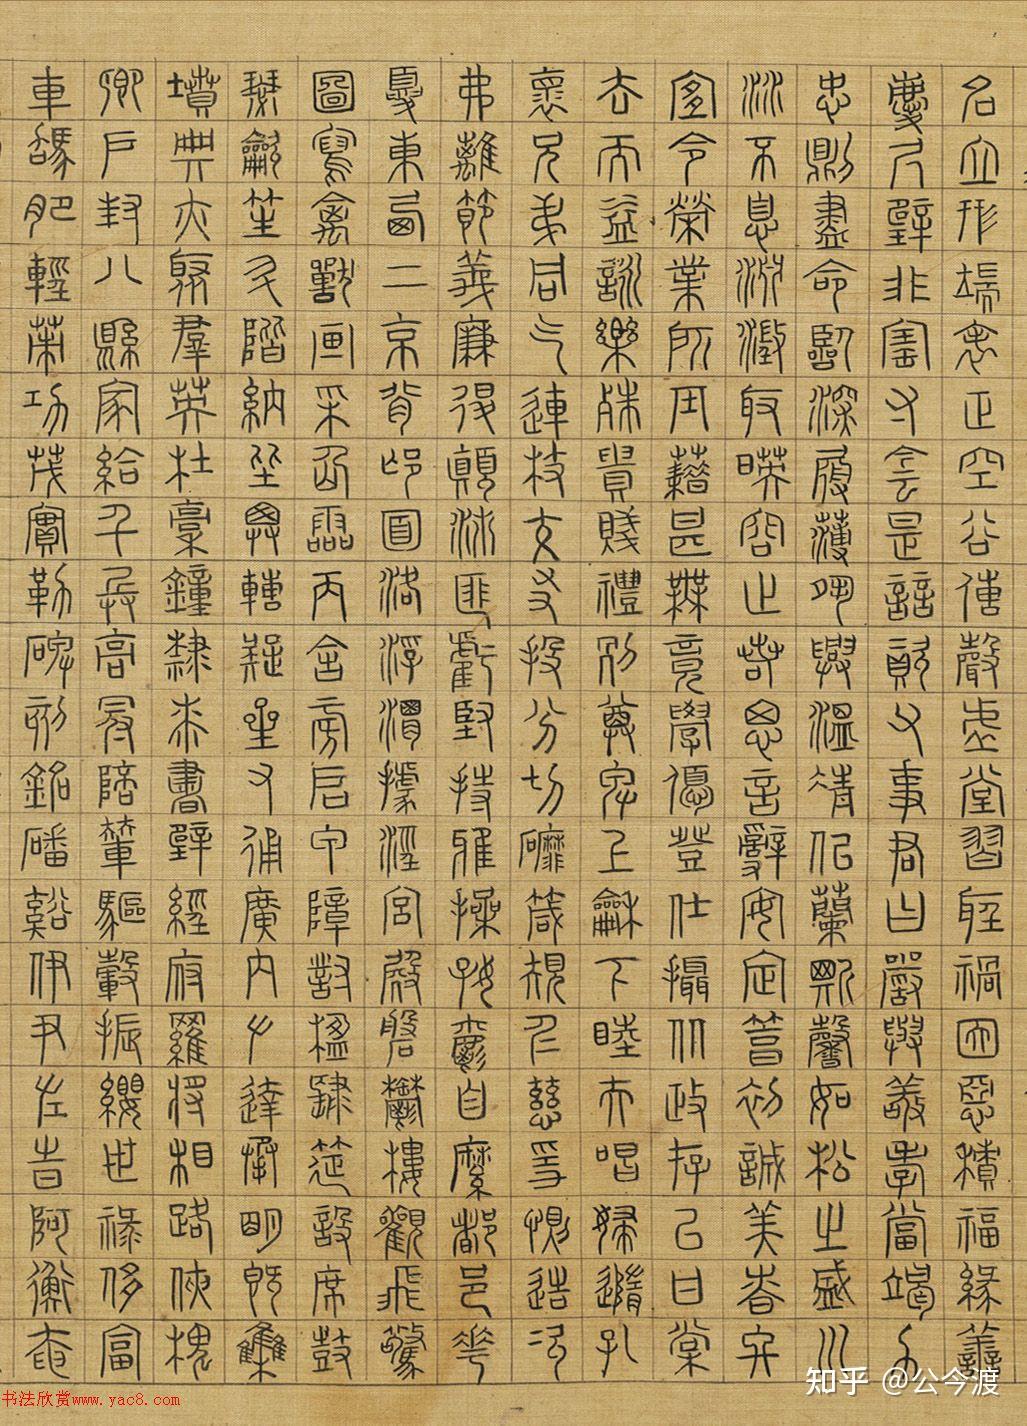 名立形端表正空谷傳聲虛堂習聽禍因惡積福緣善
慶尺璧非寶寸陰是競資父事君曰嚴與敬孝當竭力
忠則盡命臨深履薄夙興溫清似蘭斯馨如松之盛川
流不息淵澄取映容止若思言辭安定篤初誠美慎終
宜令榮業所基藉甚無竟學優登仕攝從政存以甘棠
去而益詠樂殊貴賤禮別尊卑上和下睦夫唱婦隨孔
懷兄弟同氣連枝交友投分切磨箴規仁慈隱惻造次
弗離節義廉退顛沛匪虧堅持雅操好爵自縻都邑華
夏東西二京背邙面洛浮渭據涇宮殿盤鬱樓觀飛驚
圖寫禽獸畫采仙靈丙舍傍啟甲帳對楹肆筵設席鼓
瑟吹笙升階納陛弁轉疑星右通廣內左達承明既集
墳典亦聚群英杜稾鍾隸漆書壁經府羅將相路俠槐
卿戶封八縣家給千兵高冠陪輦驅轂振纓世祿侈富
車駕肥輕策功茂實勒碑刻銘磻溪伊尹佐時阿衡奄
知乎 @公今渡
书法欣赏www.yac8.com